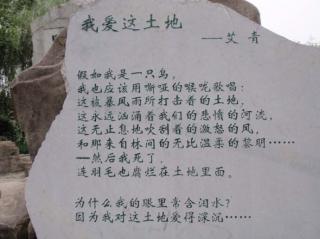 我爱这土地
——艾 青
假如我是一只鸟，
我也应该用嘶哑的喉咙歌唱：
这被暴风雨所打击着的土地，
这永远汹涌着我们的悲愤的河流，
这无止息地吹刮着的激怒的风，
和那来自林间的无比温柔的黎明……
——然后我死了，
连羽毛也腐烂在土地里面。
为什么我的眼里常含泪水？
因为我对这土地爱得深沉……